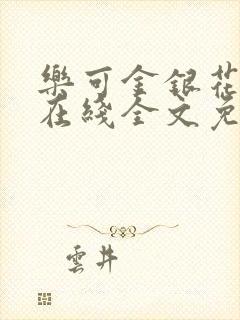 樂可金銀花
在綫全文免
雲井